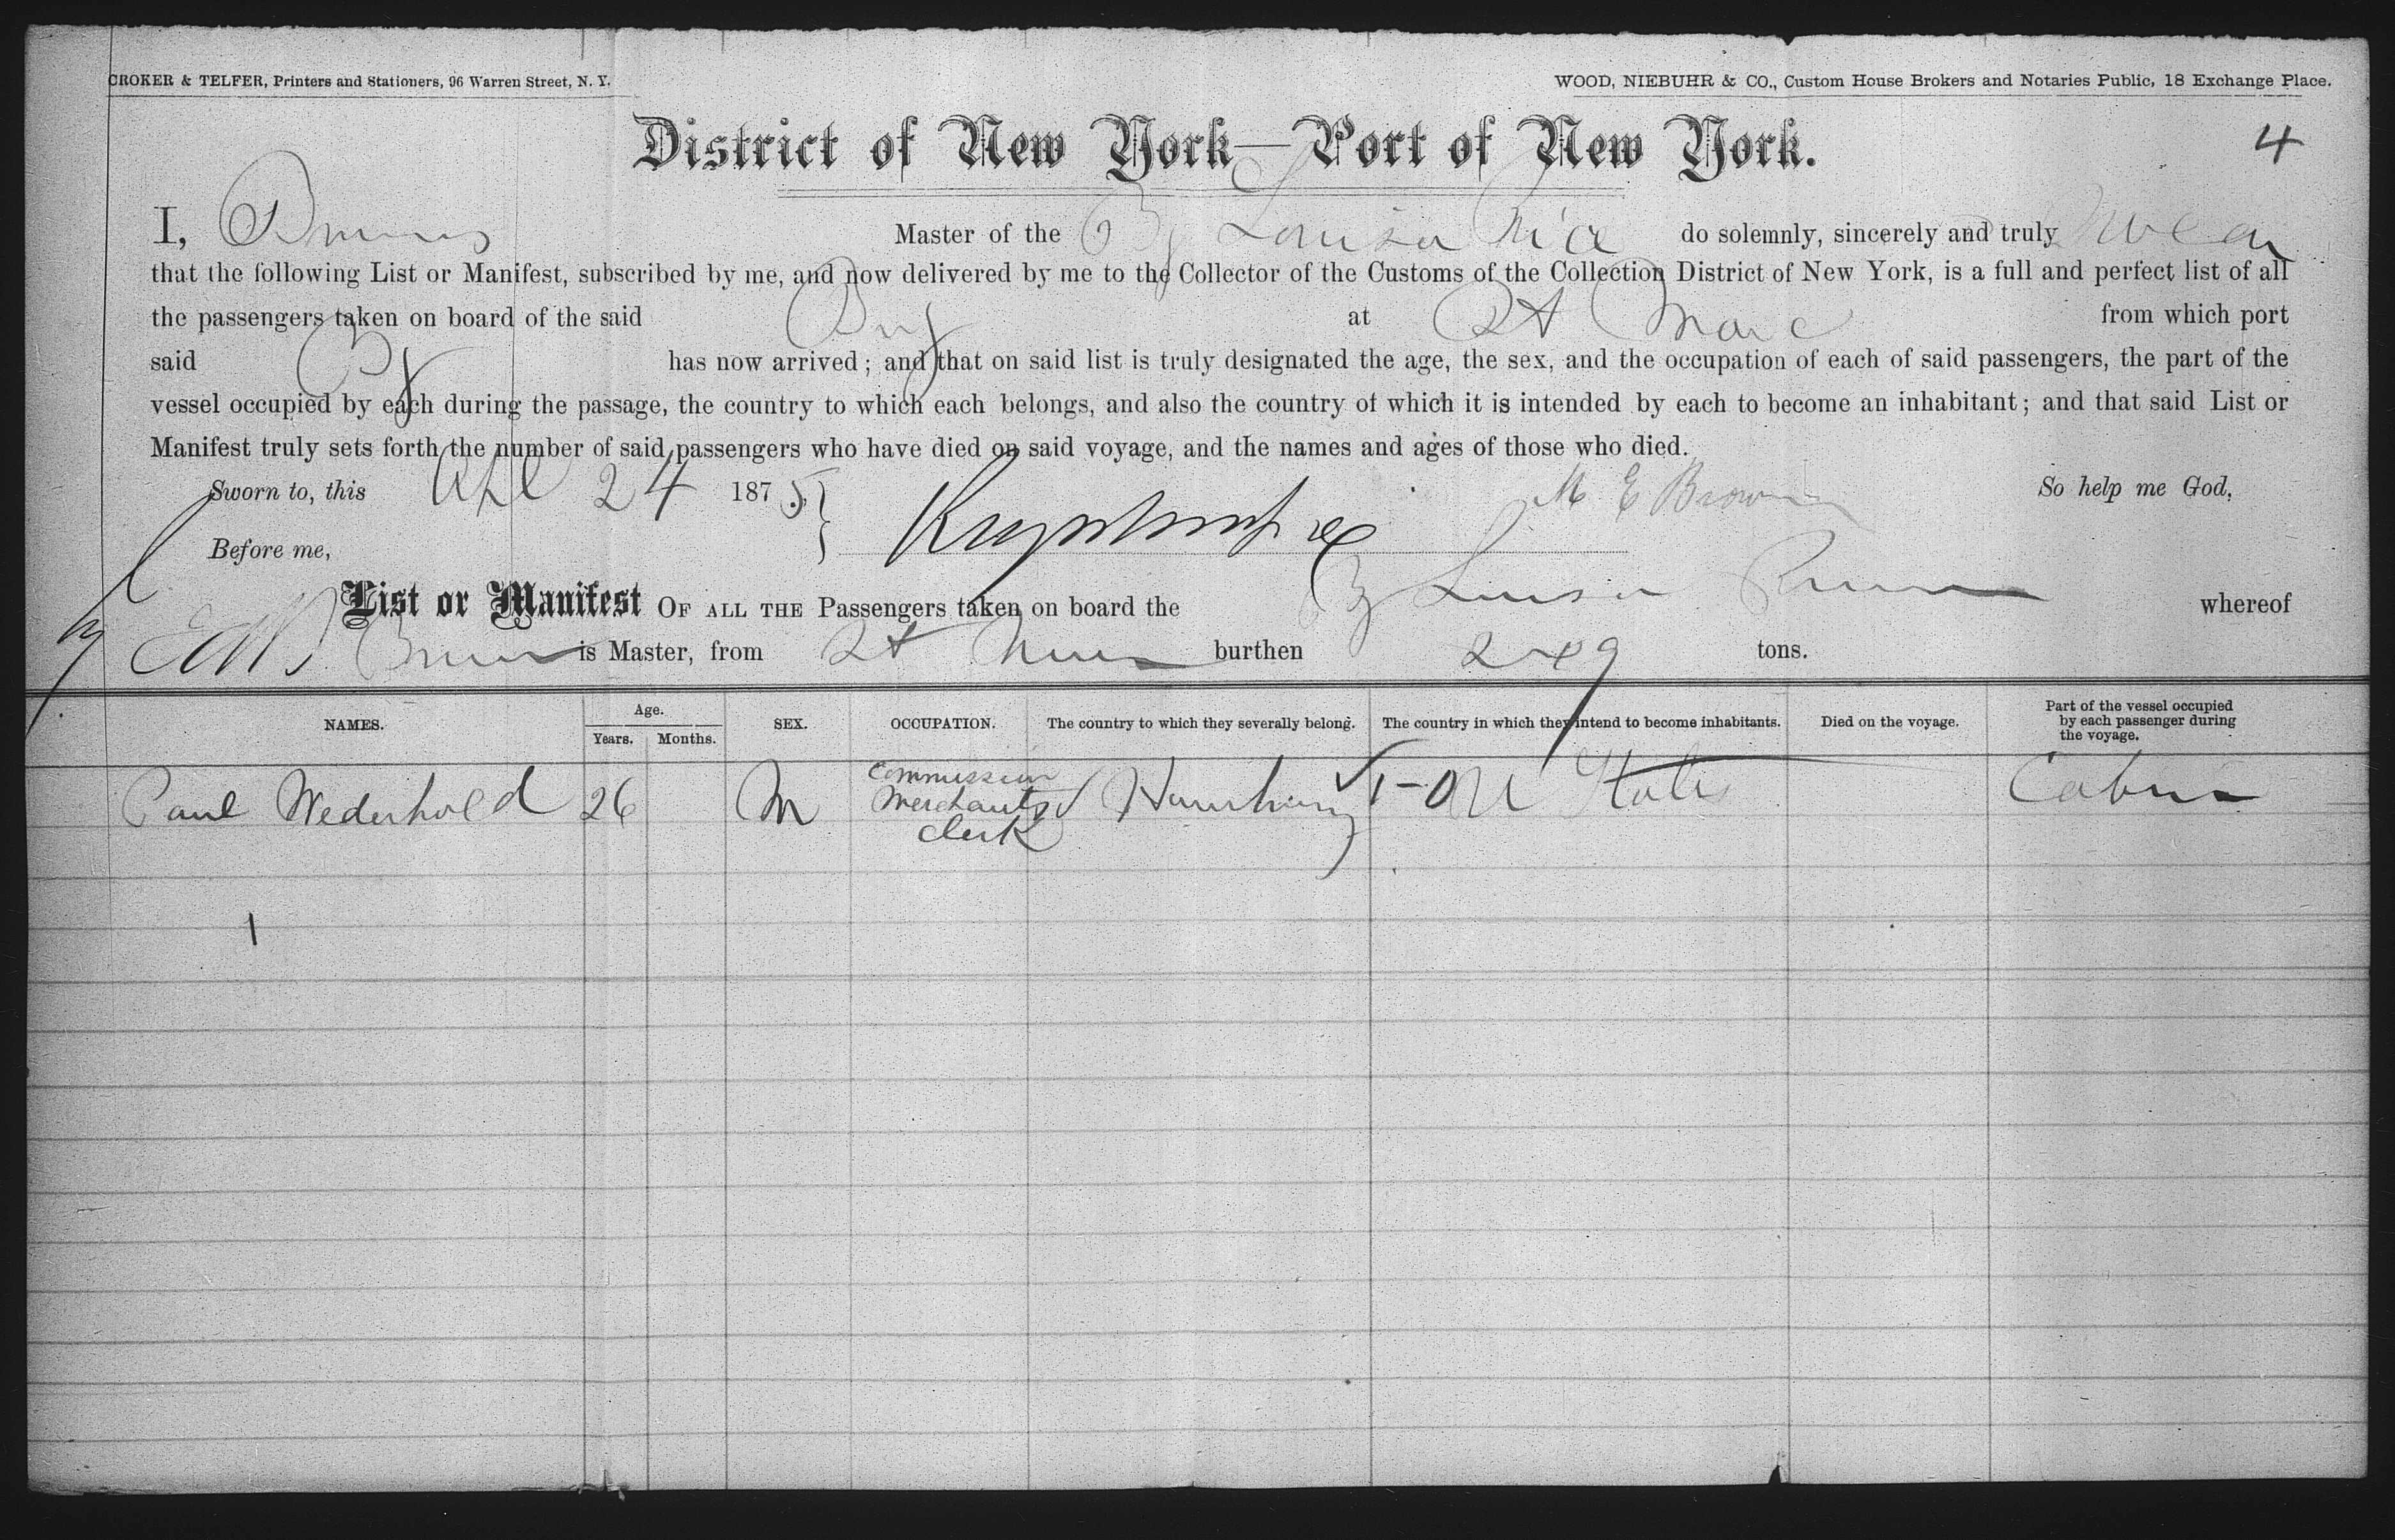 CROKER & TELFER, Printers and Stationers, 96 Warren Street, N. Y.
WOOD, NIEBUHR & CO., Custom House Brokers and Notaries Public, 18 Exchange Place.
District of New York—Port of New York.
4
I, Master of the Bg Louisa Price do solemnly, sincerely and truly swear
that the following List or Manifest, subscribed by me, and now delivered by me to the Collector of the Customs of the Collection District of New York, is a full and perfect list of all
the passengers taken on board of the said Brig at St Marc from which port
said Bg has now arrived; and that on said list is truly designated the age, the sex, and the occupation of each of said passengers, the part of the
vessel occupied by each during the passage, the country to which each belongs, and also the country of which it is intended by each to become an inhabitant; and that said List or
Manifest truly sets forth the number of said passengers who have died on said voyage, and the names and ages of those who died.
Sworn to, this Apl 24 1875 } M E Brown So help me God,
Before me,
List or Manifest OF ALL THE Passengers taken on board the Bg Louisa whereof
is Master, from St burthen 249 tons.
NAMES. Age. Years. Months. SEX. OCCUPATION. The country to which they severally belong. The country in which they intend to become inhabitants. Died on the voyage. Part of the vessel occupied by each passenger during the voyage.
Paul Wederhold 26 M Commission Merchants Clerk Hamburg U States Cabin
1